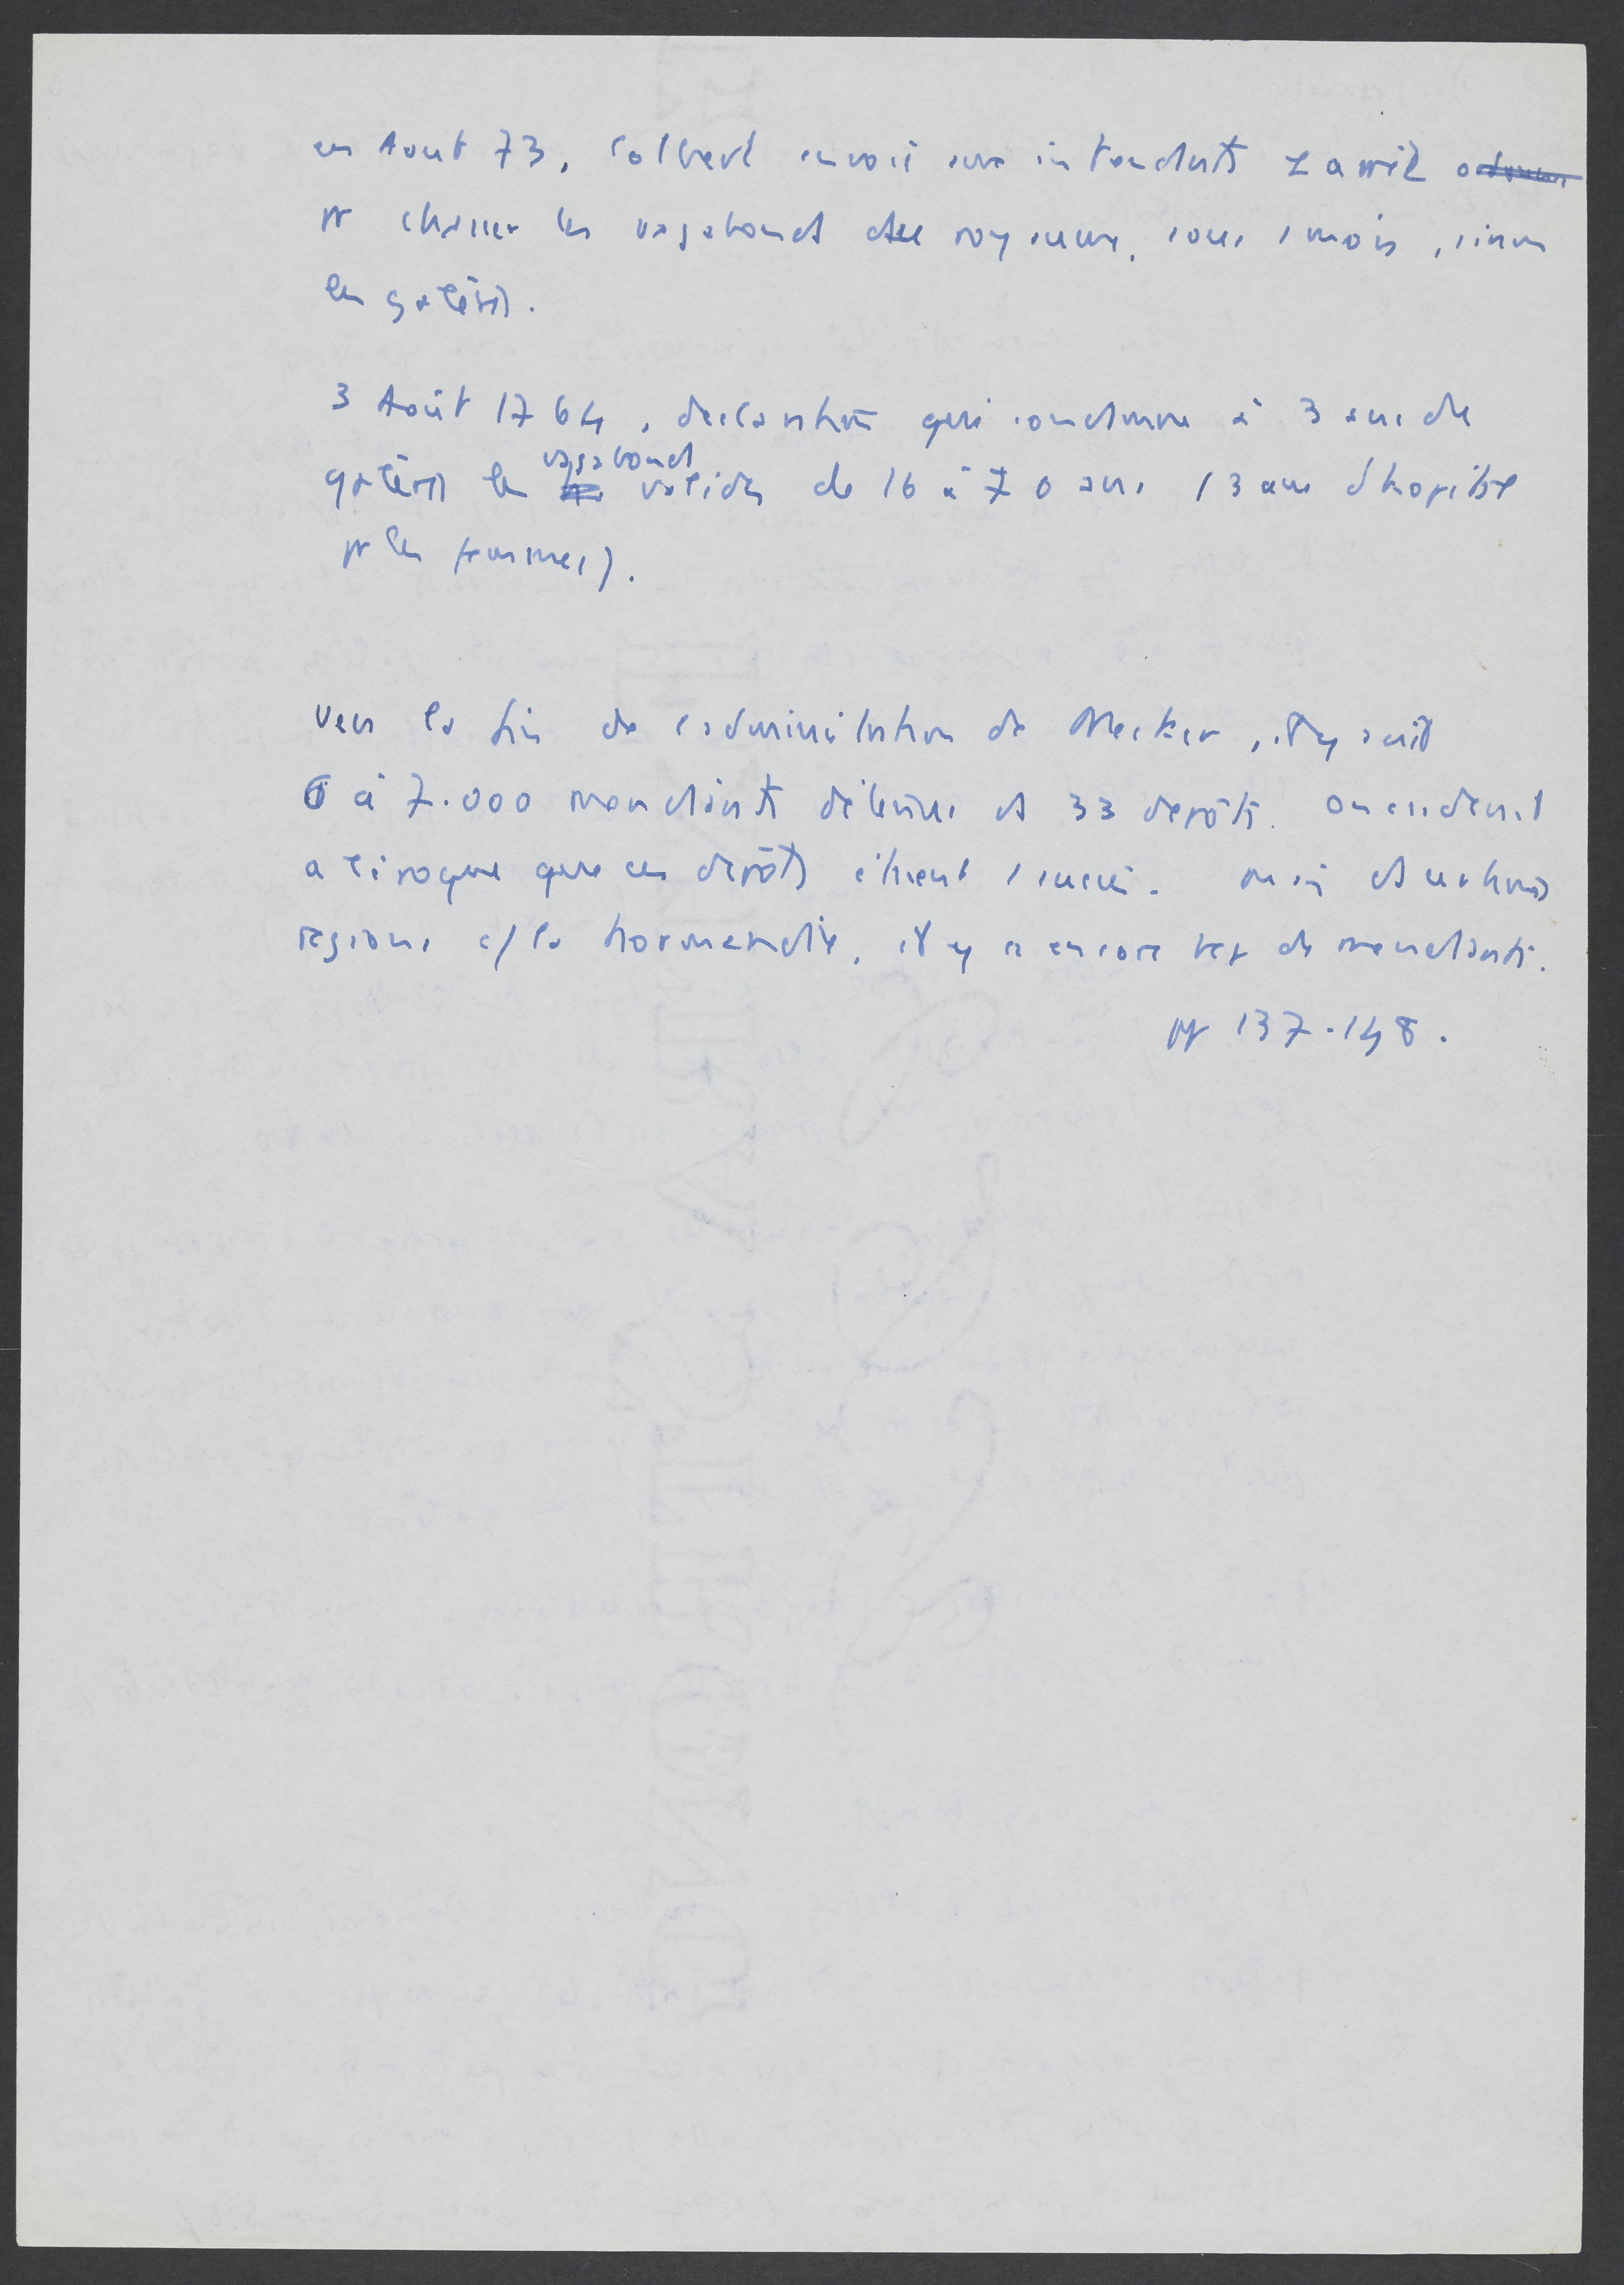 en Aout 73, Colbert envoie aux intendants l'arrêt
pr chasser les vagabonds du royaume, sous 1 mois, sinon
les galères.
3 Août 1764, déclaration qui condamne à 3 ans de
galères les vagabonds valides de 16 à 70 ans (3 ans d'hopital
pr les femmes).
Vers la fin de l'administration de Necker, il y avait
6 à 7.000 mendiants détenus ds 33 dépôts. On
a l'époque que ces dépôts étaient. Mais ds certaines
régions c/ la Normandie, il y a encore bcp de mendiants.
pp 137-148.